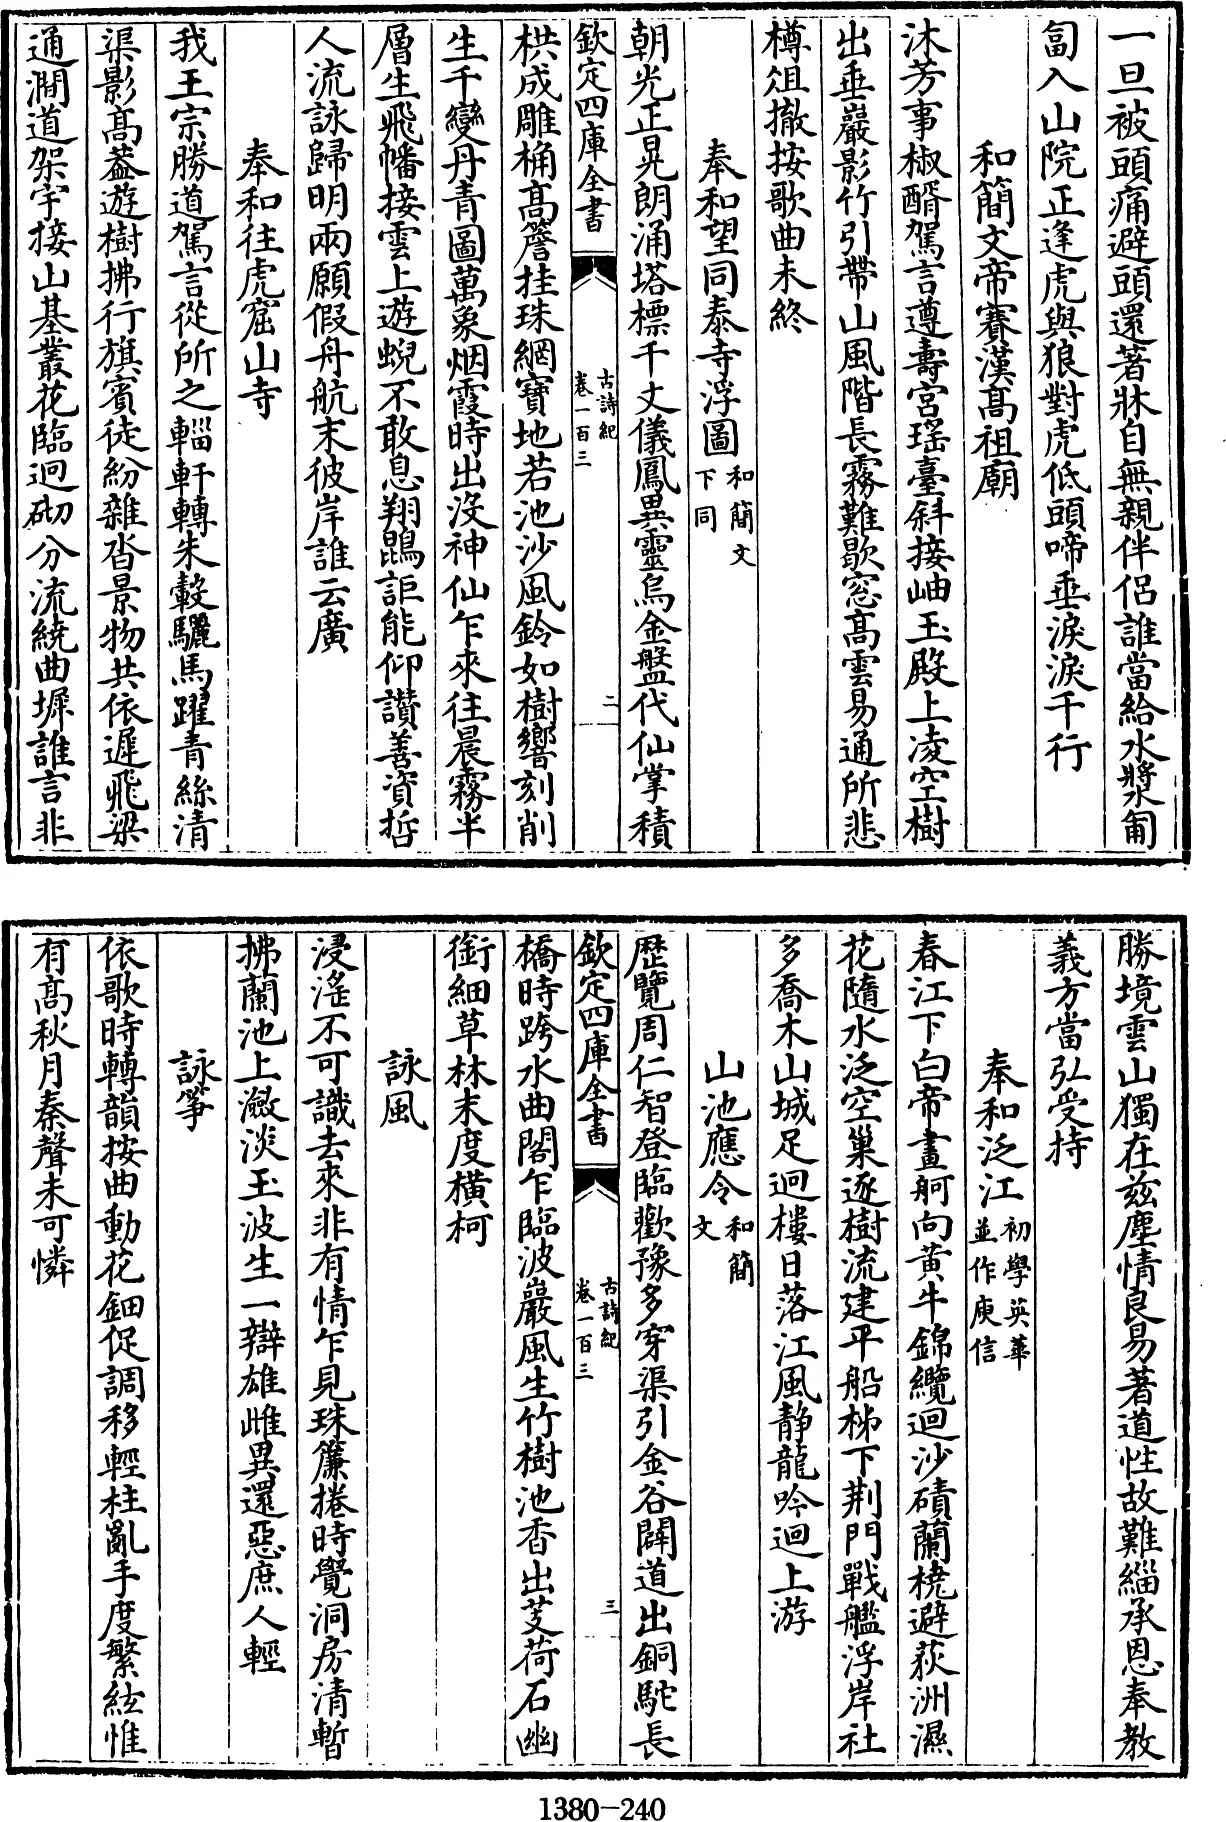 一旦被頭痛避頭還著牀自無親伴侣誰當給水漿匍
匐入山院正逢虎與狼對虎低頭啼垂淚淚千行
和簡文帝賽漢髙祖廟
沐芳事椒醑駕言遵壽宮瑶臺斜接岫玉殿上凌空樹
出垂巖影竹引帶山風階長霧難歇窓髙雲易通所悲
樽俎撤按歌曲未終
奉和望同泰寺浮圖和簡文下同
朝光正晃朗涌塔標千丈儀鳳異靈烏金盤代仙掌積
欽定四庫全書 古詩紀 卷一百三 二
栱成雕桷髙簷挂珠網寶地若池沙風鈴如樹響刻削
生千變丹青圖萬象烟霞時出没神仙乍來往晨霧半
層生飛幡接雲上遊蜺不敢息翔鵾詎能仰讃善資哲
人流詠歸明兩願假舟航末彼岸誰云廣
奉和往虎窟山寺
我王宗勝道駕言從所之輜軒轉朱轂驪馬躍青絲清
渠影髙葢遊樹拂行旗賓徒紛雜沓景物共依遲飛梁
通澗道架宇接山基叢花臨迥砌分流繞曲墀誰言非
勝境雲山獨在兹塵情良易著道性故難緇承恩奉教
義方當弘受持
奉和泛江初學英華並作庾信
春江下白帝畫舸向黄牛錦纜迴沙磧蘭橈避荻洲濕
花隨水泛空巢逐樹流建平船柹下荆門戰艦浮岸社
多喬木山城足迥樓日落江風静龍吟迴上游
山池應令和簡文
歷覽周仁智登臨歡豫多穿渠引金谷闢道出銅駝長
欽定四庫全書 古詩紀 卷一百三 三
橋時跨水曲閣乍臨波巖風生竹樹池香出芰荷石幽
銜細草林末度横柯
詠風
浸淫不可識去來非有情乍見珠簾捲時覺洞房清暫
拂蘭池上瀲淡玉波生一辯雄雌異還惡庶人輕
詠箏
依歌時轉韻按曲動花鈿促調移輕柱亂手度繁絃惟
有髙秋月秦聲未可憐
1380-240